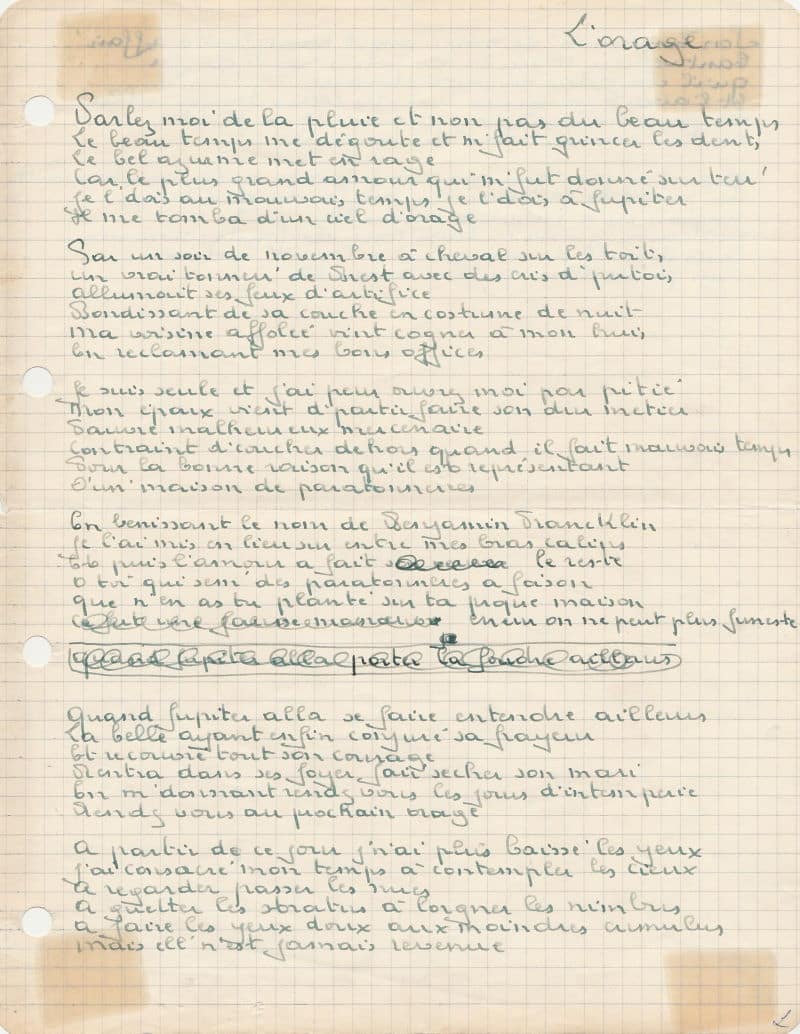 L'orage
Parlez moi de la pluie et non pas du beau temps
Le beau temps me dégoute et m'fait grincer les dents
Le bel azur me met en rage
Car le plus grand amour qui m'fut donné sur terr'
Je l'dois au mauvais temps je l'dois à Jupiter
Il me tomba d'un ciel d'orage
Par un soir de novembre à cheval sur les toits
un vrai tonnerr' de Brest avec des cris d'putois
allumait ses feux d'artifice
Bondissant de sa couche en costume de nuit
Ma voisine affolée vint cogner à mon huis
En reclamant mes bons offices
Je suis seule et j'ai peur ouvrez moi par pitié
Mon époux vient d'partir faire son dur metier
Pauvre malheureux mercenaire
Contraint d'coucher dehors quand il fait mauvais temps
Pour la bonne raison qu'il est représentant
D'un' maison de paratonneres
En benissant le nom de Benyamin Francklin
Je l'ai mis en lieu sur entre mes bras calins
Et puis l'amour a fait le reste
O toi qui sem' des paratonneres a foison
que n'en as tu planté sur ta propre maison
ce fut une fausse manoeuvr' erreur on ne peut plus funeste
quand Jupiter alla porter la foudre ailleurs
Quand Jupiter alla se faire entendre ailleurs
La belle ayant enfin conjuré sa frayeur
Et recouvré tout son courage
Rentra dans ses foyer fair' secher son mari
En m'donnant rendez vous les jours d'intemperie
Rendez vous au prochain orage
A partir de ce jour j'n'ai plus baissé les yeux
J'ai consacré mon temps à contempler les cieux
A regarder passer les nues
A guetter les stratus à lorgner les nimbus
A faire les yeux doux aux moindres cumulus
Mais ell' n'est jamais revenue